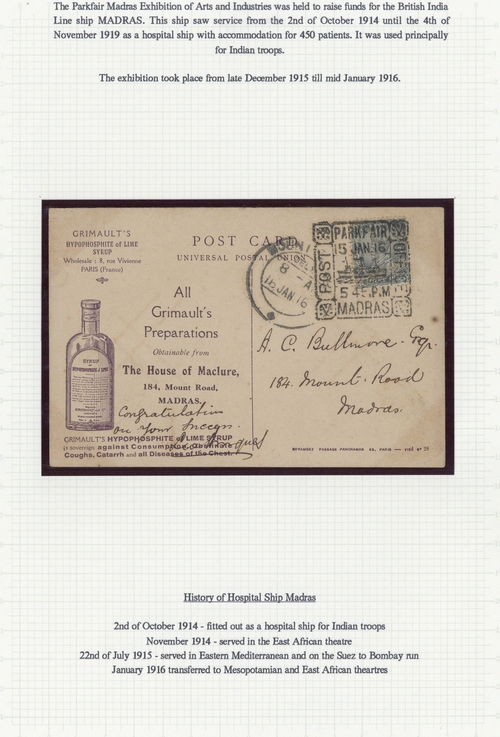 The Parkfair Madras Exhibition of Arts and Industries was held to raise funds for the British India
Line ship MADRAS. This ship saw service from the 2nd of October 1914 until the 4th of
November 1919 as a hospital ship with accommodation for 450 patients. It was used principally
for Indian troops.
The exhibition took place from late December 1915 till mid January 1916.
GRIMAULT'S
HYPOPHOSPHITE of LIME
SYRUP
Wholesale : 8, rue Vivienne
PARIS (France)
POST CARD
UNIVERSAL POSTAL UNION
All
Grimault's
Preparations
Obtainable from
The House of Maclure,
184, Mount Road,
MADRAS.
SYRUP
Congratulation
on your success.
GRIMAULT'S HYPOPHOSPHITE of LIME SYRUP
is sovereign against Consumption, Obstinate
Coughs, Catarrh and all Diseases of the Chest.
8 - A
16 JAN 16
PARKFAIR
15 JAN. 16
POST
OFFICE
5 45 P.M
MADRAS
A. C. Bullmore. Esqr.
184. Mount. Road
Madras.
History of Hospital Ship Madras
2nd of October 1914 - fitted out as a hospital ship for Indian troops
November 1914 - served in the East African theatre
22nd of July 1915 - served in Eastern Mediterranean and on the Suez to Bombay run
January 1916 transferred to Mesopotamian and East African theartres